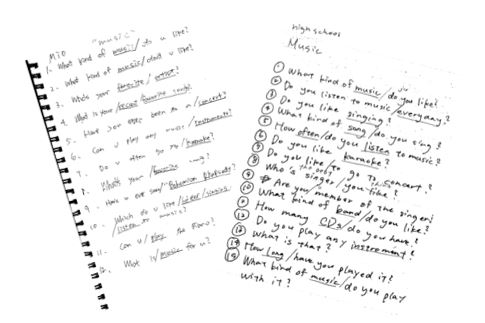 MIO "music"
1. What kind of music/ do u like?
2. What kind of music/ don't u like?
3. Who's your favorite artist?
4. What is your favorite song?
5. Have you ever been to a concert?
6. Can u play any music instruments?
7. Do u often go to karaoke?
8. What's your favorite song?
9. Have u ever Bohemian Rhapsody?
10. Which do u like/ singing
/listen to music?
11. Can u/ play the Piano?
12. What is/ music for u?
high school
Music
① What kind of music/do you like?
② Do you listen to music/everyday?
③ Do you like singing?
④ What kind of song/do you sing?
⑤ How often/do you listen to music?
⑥ Do you like karaoke?
⑦ Do you like/to go to concert?
⑧ Who's singer/you like?
⑨ Are you/member of the
⑩ What kind of band/do you like?
⑪ How many CDs/do you have?
⑫ Do you play any instrement?
⑬ What is that?
⑭ How long/have you played it?
⑮ What kind of music/do you play
with it?